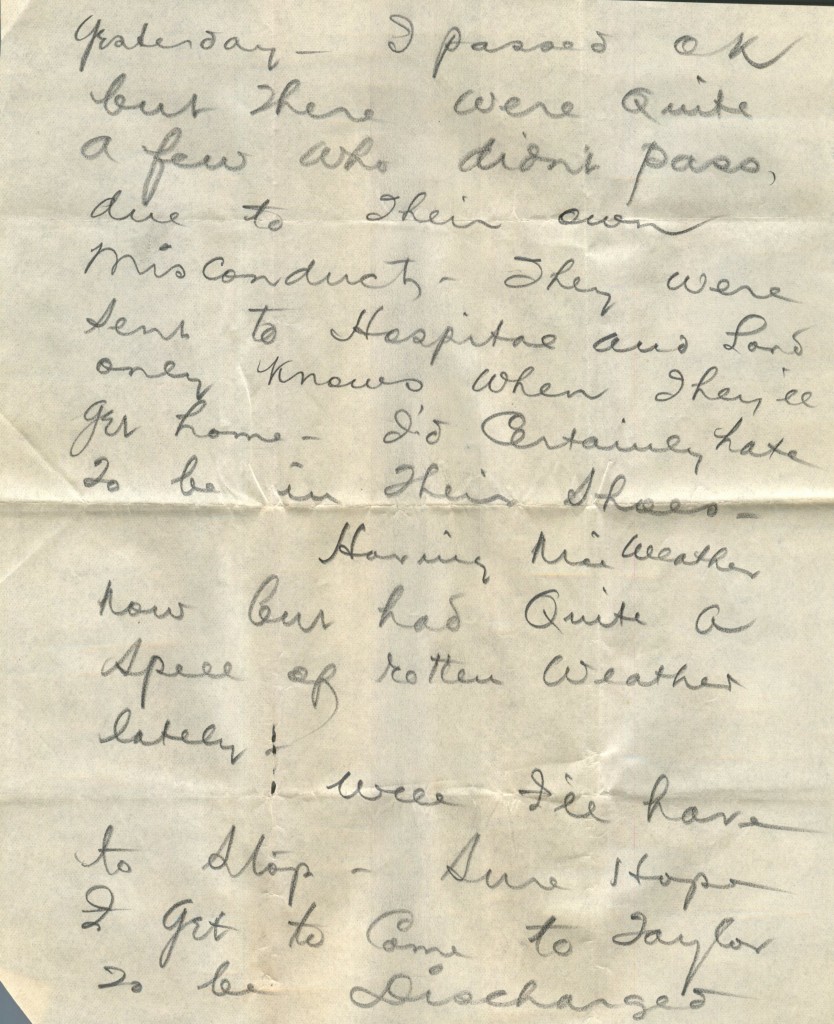 Yesterday - I passed OK
but there were Quite
a few who didn't pass,
due to their own
misconduct - They were
sent to Hospital and Lord
only knows when they'll
get home - I'd Certainly hate
to be in their shoes -
Having Nice Weather
now but had Quite a
spell of rotten Weather
lately!
Well I'll have
to stop - Sure Hope
I Get to Come to Taylor
to be Discharged